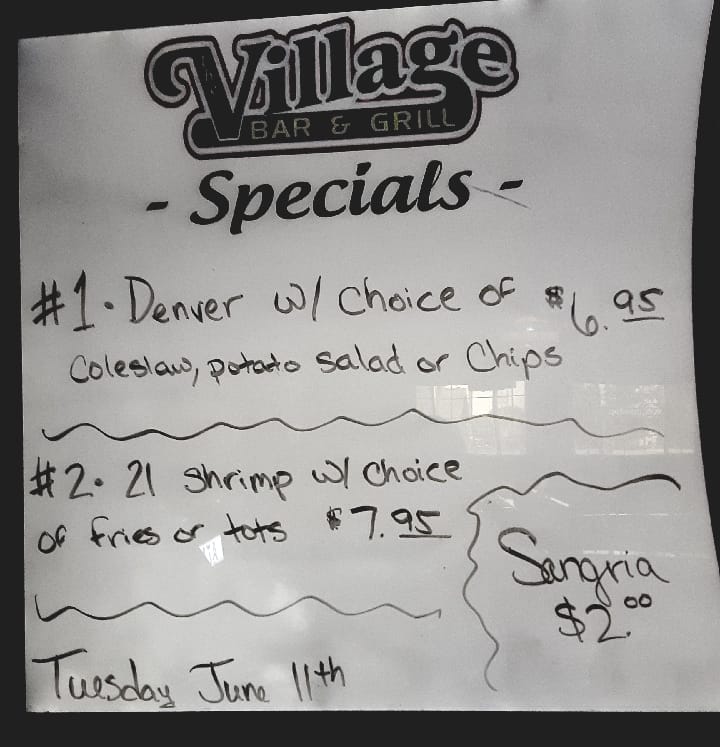 Village
BAR & GRILL
- Specials -
#1. Denver w/ Choice of $6.95
Coleslaw, potato salad or Chips
#2. 21 Shrimp w/ Choice
of fries or tots $7.95
Sangria
$2.00
Tuesday June 11th